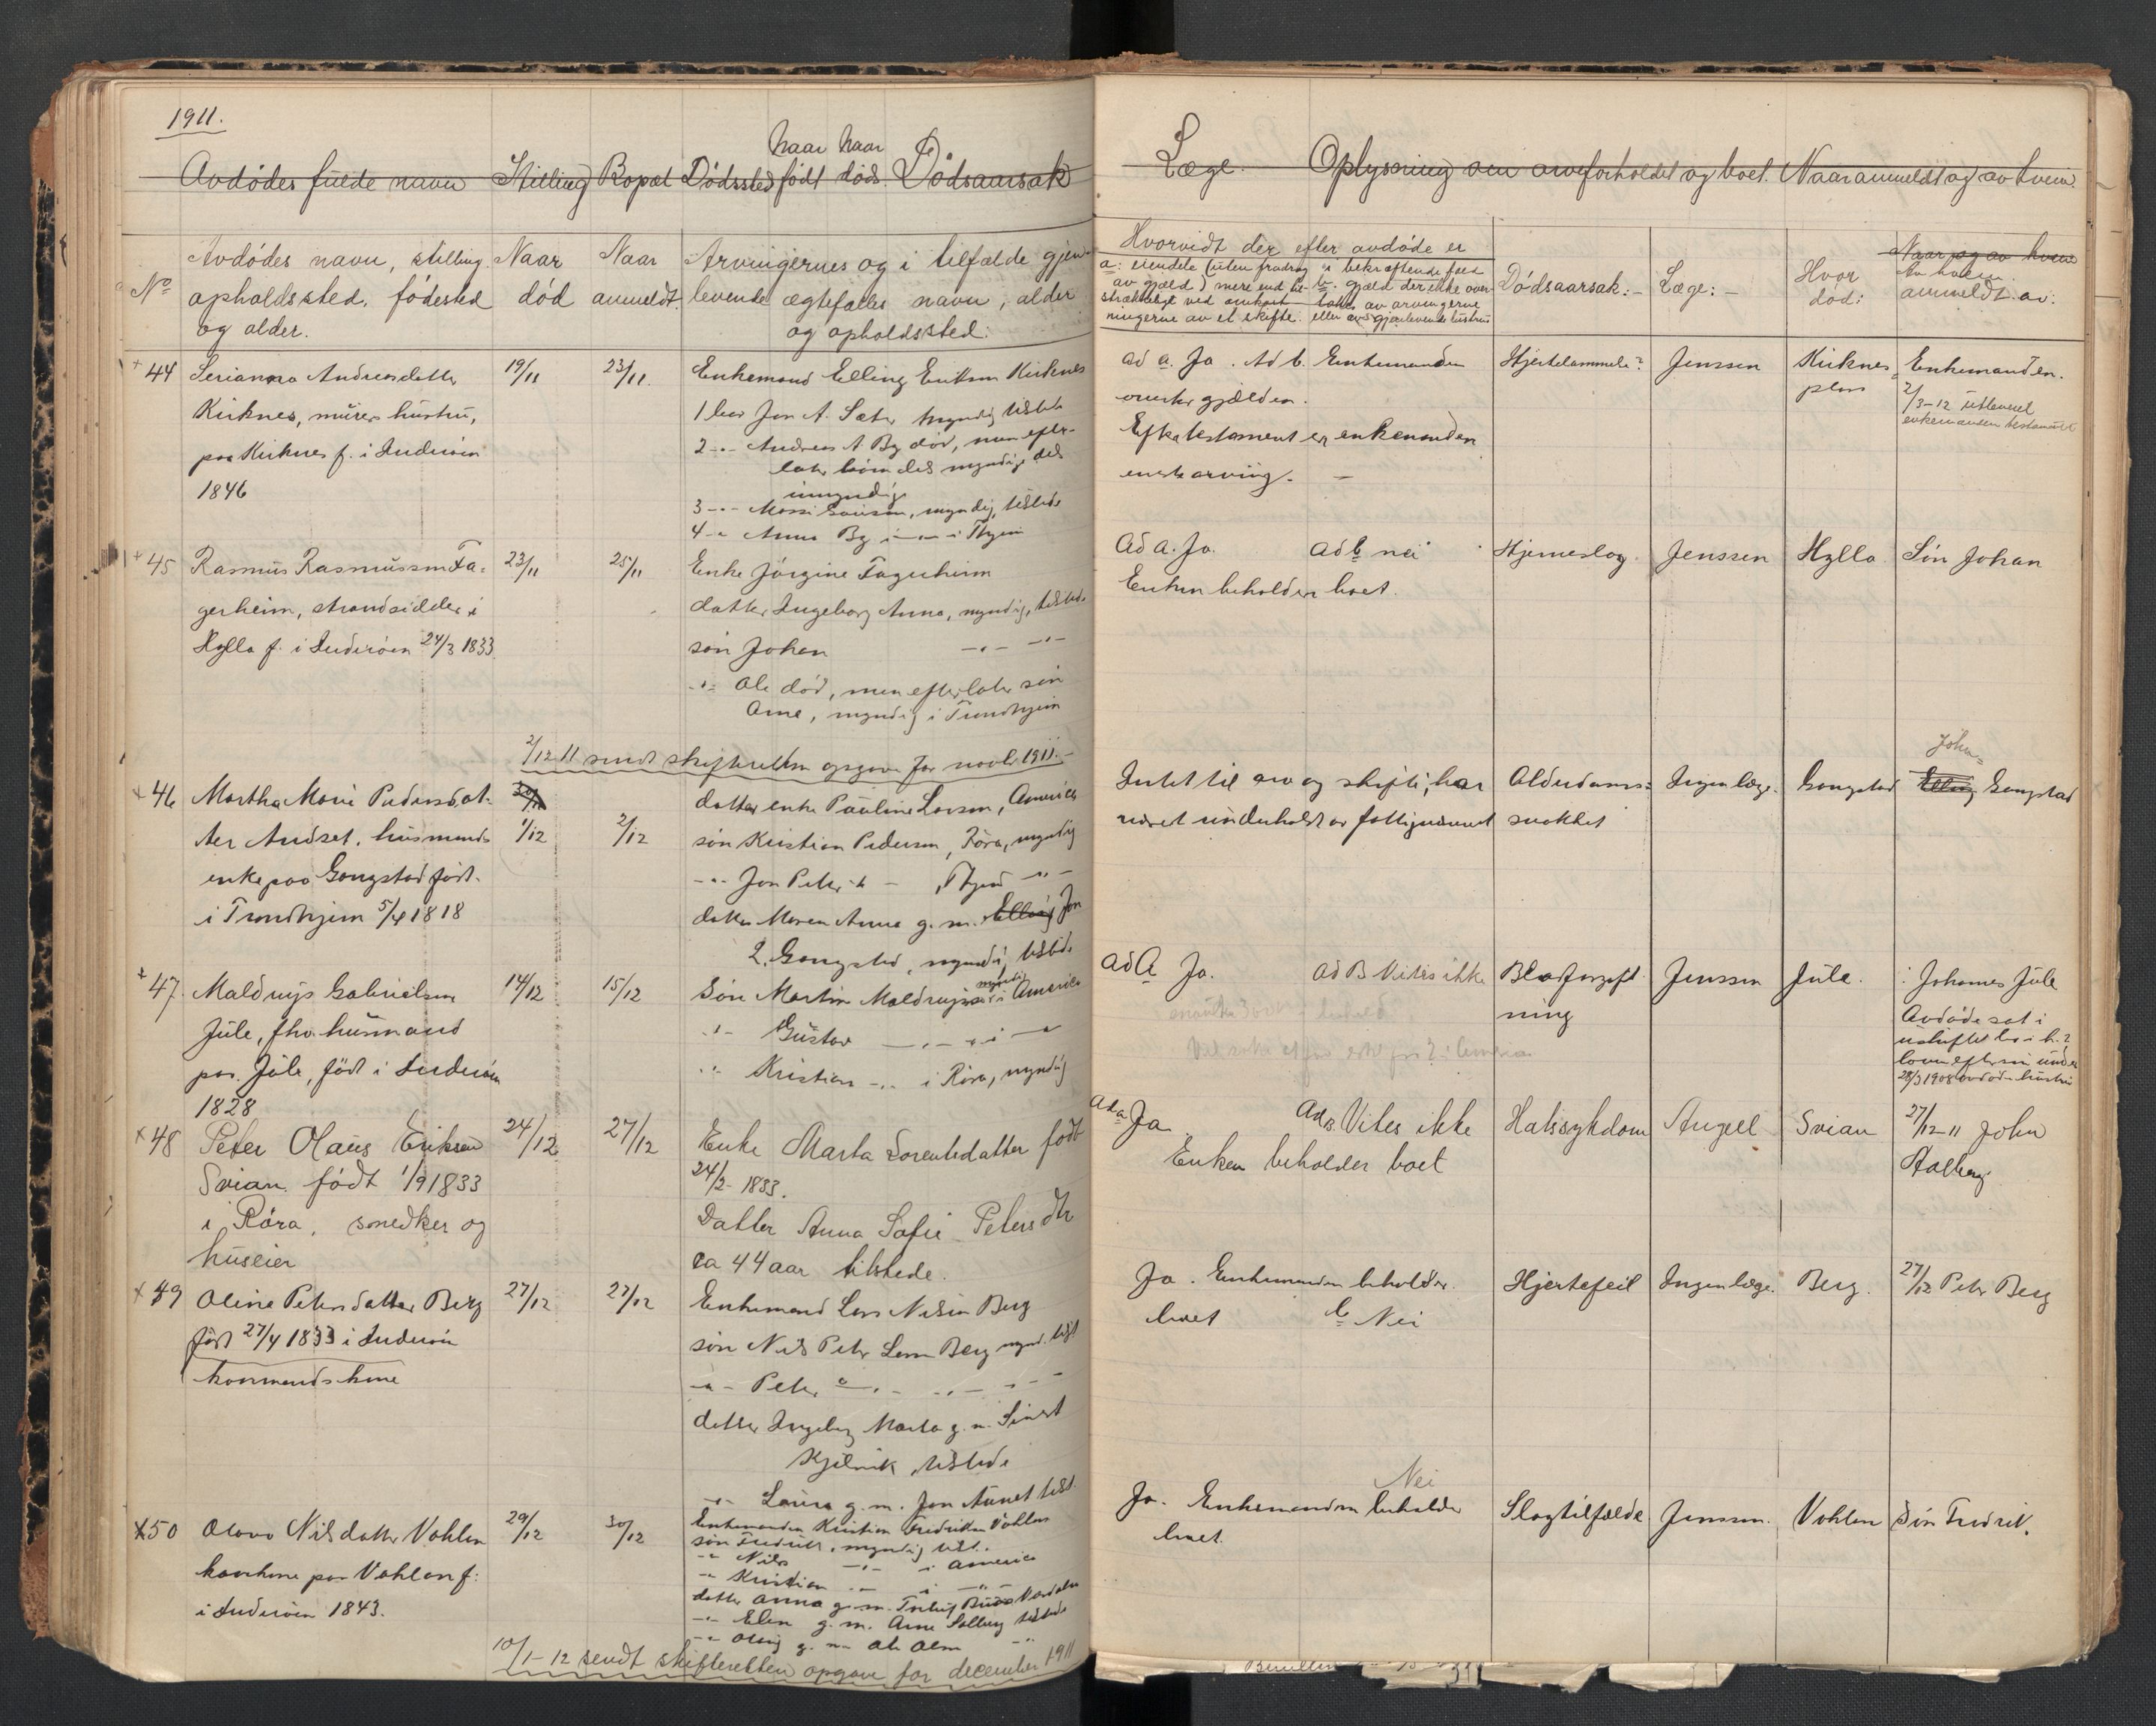 1911.
Avdødes fulde navn Stilling Bopæl Dødssted Naar født Naar død. Dødsaarsak
No Avdødes navn, stilling, opholdssted, fødested og alder.
Naar død
Naar anmeldt.
Arvingernes og i tilfælde gjenlevende ægtefælles navn, alder og opholdssted:
+ 44 Serianna Andreasdatter
Kirknes, murers hustru,
paa Kirknes f. i Inderøen
1846
19/11
23/11.
Enkemand Elling Eriksen Kirknes
1 bror Jon A. Sæter myndig tilstede
2 -"- Andreas A. By død, men efter-
later børn dels myndige dels
umyndige
3 -"- myndig, tilstede
4 -"- Anna By i Thjem
+ 45 Rasmus Rasmussen Fa-
gerheim, strandsidder i
Hylla f. i Inderøen 24/3 1833.
23/11
25/11
Enke Jørgine Fagerheim
datter Ingeborg Anna, myndig, tilstede
søn Johan -"- -"-
-"- Ole død, men efterlater søn
Arne, myndig i Trondhjem
2/12 11 sendt skifteretten opgave for novbr 1911.-
+ 46 Martha Marie Pedersdat-
ter Andset, husmands
enke paa Gangstad født
i Trondhjem 5/4 1818
1/12
2/12
datter enke Pauline Larsen, Amerika
søn Kristian Pedersen, Røra, myndig
-"- Jon Peter -"- , Thjem -"-
datter Maren Anna g. m. Elling Jon
L. Gangstad, myndig, tilstede
+ 47. Maldrup Gabrielsen
Jule, fhv. husmand
paa Jule, født i Inderøen
1828
14/12
15/12
Søn Martin myndig i Amerika
-"- Gustav -"- i -"-
-"- Kristian -"- i Røra, myndig
x 48 Peter Olaus Eriksen
Svian født 1/9 1833
i Røra, snedker og
huseier
24/12
27/12
Enke Marta Lorentsdatter født
24/2- 1833.
Datter Anna Sofie Petersdtr
ca 44 aar tilstede.
x 49 Oline Petersdatter Berg
født 27/4 1833 i Inderøen
kaarmandskone
27/12
27/12
Enkemand Lars Nilsen Berg
søn Nils Peter Larsen Berg mynd. tilst
-"- Peter -"- -"- -"-
datter Ingeborg Marta g. m. Sivert
Kjelvik, tilstede
-"- Laura g. m. Jon Aunet tilst.
x 50 Olava Nilsdatter Vohlen
kaarkone paa Vohlen f.
i Inderøen 1843.
29/12
30/12
Enkemanden Kristian Fredriksen Vohlen
søn Fredrik, myndig tilst.
-"- Nils -"- i Amerika
-"- Kristian -"- i -"-
datter Anna g. m. Verdalen
-"- Elen g. m. Arne Solberg tilstede
-"- g. m. Ole Olsen -"-
10/1-12 sendt skifteretten opgave for december 1911
Læge. Oplysning om arveforholdet og boet. Naar anmeldt og av hvem.
Hvorvidt der efter avdøde er
a: eiendele (uten fradrag
av gjæld) mere end
b. gjæld der ikke over-
av arvingerne
eller av gjenlevende hustru
Dødsaarsak:-
Læge:-
Hvor død:
Naar og av hvem
Av hvem
anmeldt av:
ad a. Ja. Ad b. Enkemanden
overtar gjælden.
Efter testament er enkemanden
eneste arving. -
Hjertelammelse?
Jenssen
Kirknes
plass
Enkemanden.
2/3-12 utleveret
enkemanden testamentet
Ad a. Ja. ad b nei
Enken beholder boet.
Hjerneslag.
Jenssen
Hylla
Søn Johan
Intet til arv og skifte, har
været underholdt av fattigvæsenet
Alderdoms-
svakhet
Ingen læge.
Gangstad
John
Elling Gangstad
Ad a Ja. ad B Vites ikke
Blodforgift-
ning
Jenssen
Jule.
Johannes Jule
Avdøde sat i
uskiftet bo i h. t.
loven efter sin under
28/3 1908 avdøde hustru
Ad a Ja Ad B Vites ikke
Enken beholder boet
Halssykdom
Angell
Svian
27/12-11 John
Aalberg
Ja. Enkemanden beholder
boet b Nei
Hjertefeil
Ingen læge.
Berg.
27/12 Peter Berg
Nei
Ja. Enkemanden beholder
boet.
Slagtilfælde
Jenssen.
Vohlen
Søn Fredrik.